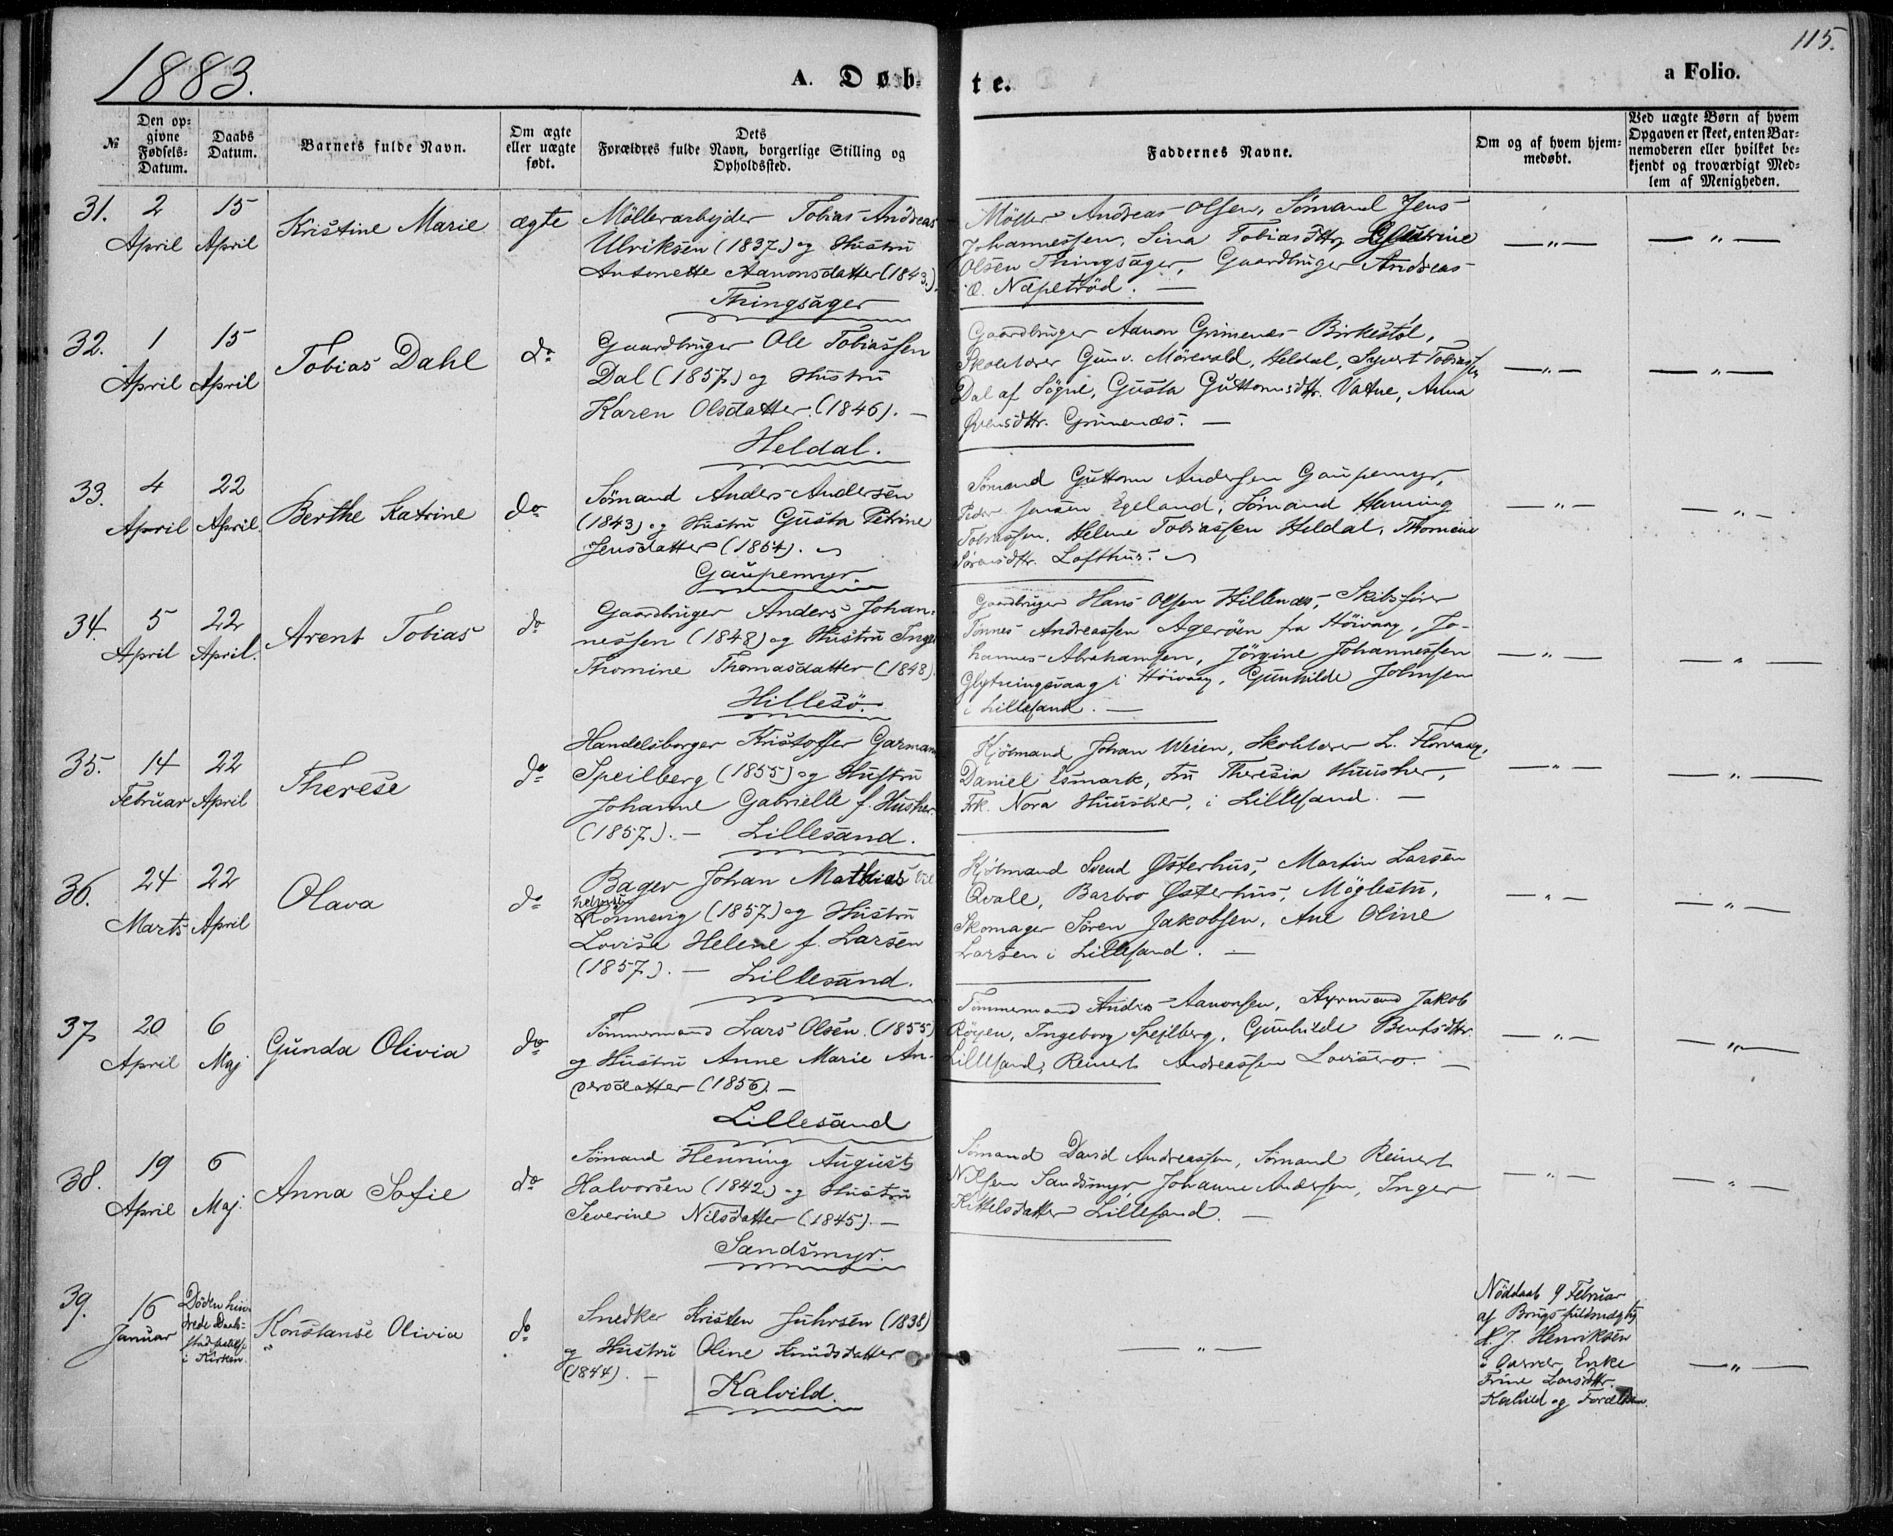 1883.
A. Døbte.
a Folio.
115.
№
Den opgivne Fødsels-Datum.
Daabs Datum.
Barnets fulde Navn.
Om ægte eller uægte født.
Dets Forældres fulde Navn, borgerlige Stilling og Opholdssted.
Faddernes Navne.
Om og af hvem hjemmedøbt.
Ved uægte Børn af hvem Opgaven er skeet, enten Barnemoderen eller hvilket bekjendt og troværdigt Medlem af Menigheden.
31.
2 April
15 April
Kristine Marie
ægte
Møllerarbejder Tobias Andreas
Ulriksen (1837.) og Hustru
Antonette Aanonsdatter (1843.).
Thingsager
Møller Andreas Olsen, Sømand Jens
Johannessen, Sina Tobiasdttr,
Olsen Thingsager, Gaardbruger Andreas
Næpetrød. —
— „ —
— „ —
32.
1 April
15 April
Tobias Dahl
do
Gaardbruger Ole Tobiassen
Dal (1857.) og Hustru
Karen Olsdatter. (1846). —
Heldal.
Gaardbruger Aanon Grimenes Birkestøl,
Skolelærer Gunv. Mørevold, Heldal, Sigvert Tobiassen
Dal af Søgne, Gusta Guttormsdttr. Vatne, Anna
Grimenæs. —
— „ —
— „ —
33.
4 April
22 April.
Berthe Katrine
do
Sømand Anders Andersen
(1843) og Hustru Gusta Petrine
Jensdatter (1854).
Gaupemyr.
Sømand Guttorm Andersen Gaupemyr,
Peder Jensen Egeland, Sømand Henning
Tobiassen, Helene Tobiassen Heldal, Thomine
Sørensdttr. Lofthus.
— „ —
— „ —
34.
5 April
22 April.
Arent Tobias
do
Gaardbruger Anders Johan-
nessen (1848) og Hustru Inger
Thomine Thomasdatter (1848).
Hillesø.
Gaardbruger Hans Olsen Hillenæs, Skibsfører
Tønnes Andreassen Agerøen fra Høivaag, Jo-
hannes Abrahamsen, Jørgine Johannessen
Glytningsvaag i Høivaag, Gunhilde Johnsen
i Lillesand. —
— „ —
— „ —
35.
14 Februar
22 April
Therese
do
Handelsborger Kristoffer Garmann
Speilberg (1855) og Hustru
Johanne Gabrielle f. Husher
(1857.). — Lillesand.
Kjøbmand Johan Weien, Skolelærer L. Florvaag,
Daniel Esmark, Fru Theresia Huusher,
Frk. Nora Huusher, i Lillesand. —
— „ —
— „ —
36.
24 Marts
22 April
Olava
do
Bager Johan Mathias Vil
helmsen
Rønnevig (1857.) og Hustru
Lovise Helene f. Larsen
(1857.). — Lillesand.
Kjøbmand Svend Østerhus, Martin Larsen
Qvale, Barbro Østerhus, Møglestu,
Skomager Søren Jakobsen, Ane Oline
Larsen i Lillesand. —
— „ —
— „ —
37.
20 April
6 Maj
Gunda Olivia
do
Tømmermand Lars Olsen. (1855)
og Hustru Anne Marie An-
dersdatter (1856). —
Lillesand
Tømmermand Andr. Aanonsen, Styrmand Jakob
Røyen, Ingeborg Spejlberg, Gunhilde Bentsdttr.
Lillesand, Reinert Andreassen Lovisero. —
— „ —
— „ —
38.
19 April
6 Maj.
Anna Sofie
do
Sømand Henning August
Halvorsen (1842) og Hustru
Severine Nilsdatter (1845). —
Sandsmyr.
Sømand David Andreassen, Sømand Reinert
Nilsen Sandsmyr, Johanne Andersen, Inger
Kittelsdatter Lillesand. —
— „ —
— „ —
39.
16 Januar
Døden hin-
drede Daabs-
i Kirken.
Konstanse Olivia
do
Snedker Kristen Juhrsen (1838)
og Hustru Oline Knudsdatter
(1844). —
Kalvild.
— „ —
Nøddaab 9 Februar
af Brugsfuldmægtig
H. J. Henriksen
Enke
Trine Larsdttr.
Kalvild og Forældrene.
— „ —